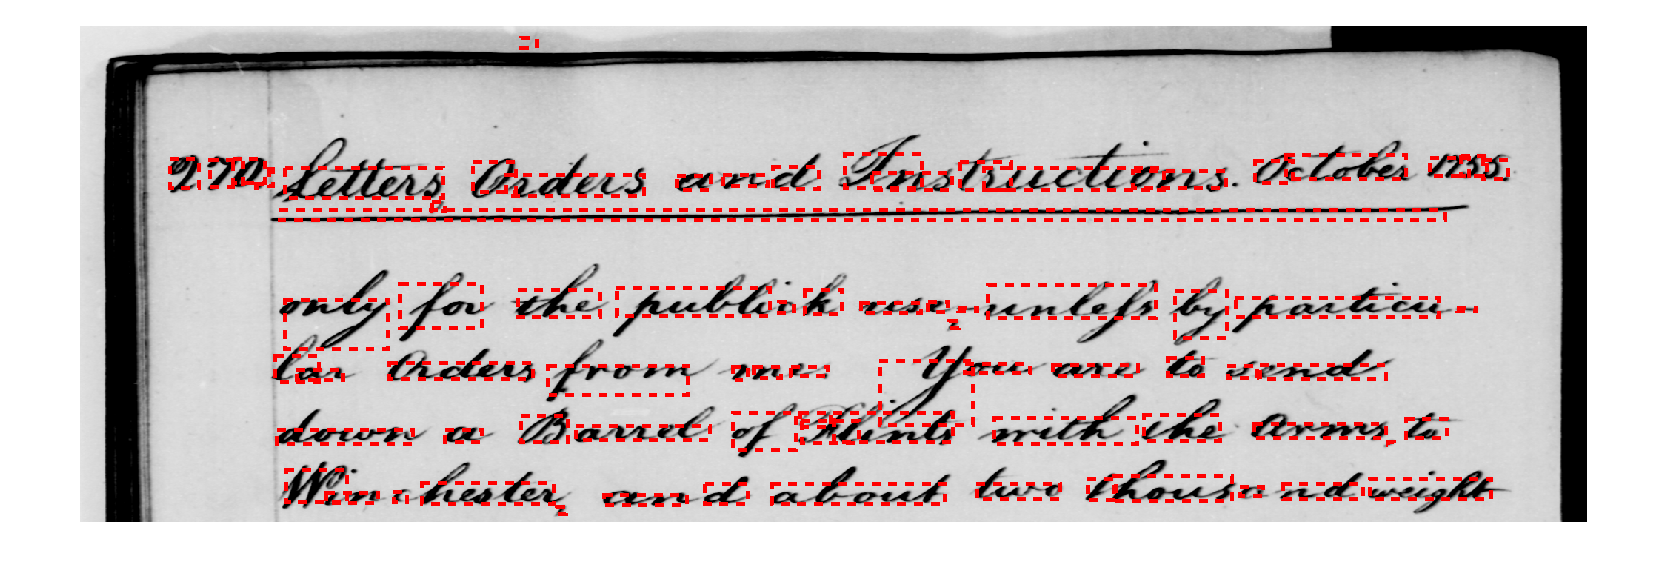 270. Letters, Orders and Instructions. October 1755.
only for the publick use, unless by particu-
lar Orders from me. You are to send
down a Barrel of Flints with the Arms, to
Winchester, and about two thousand weight